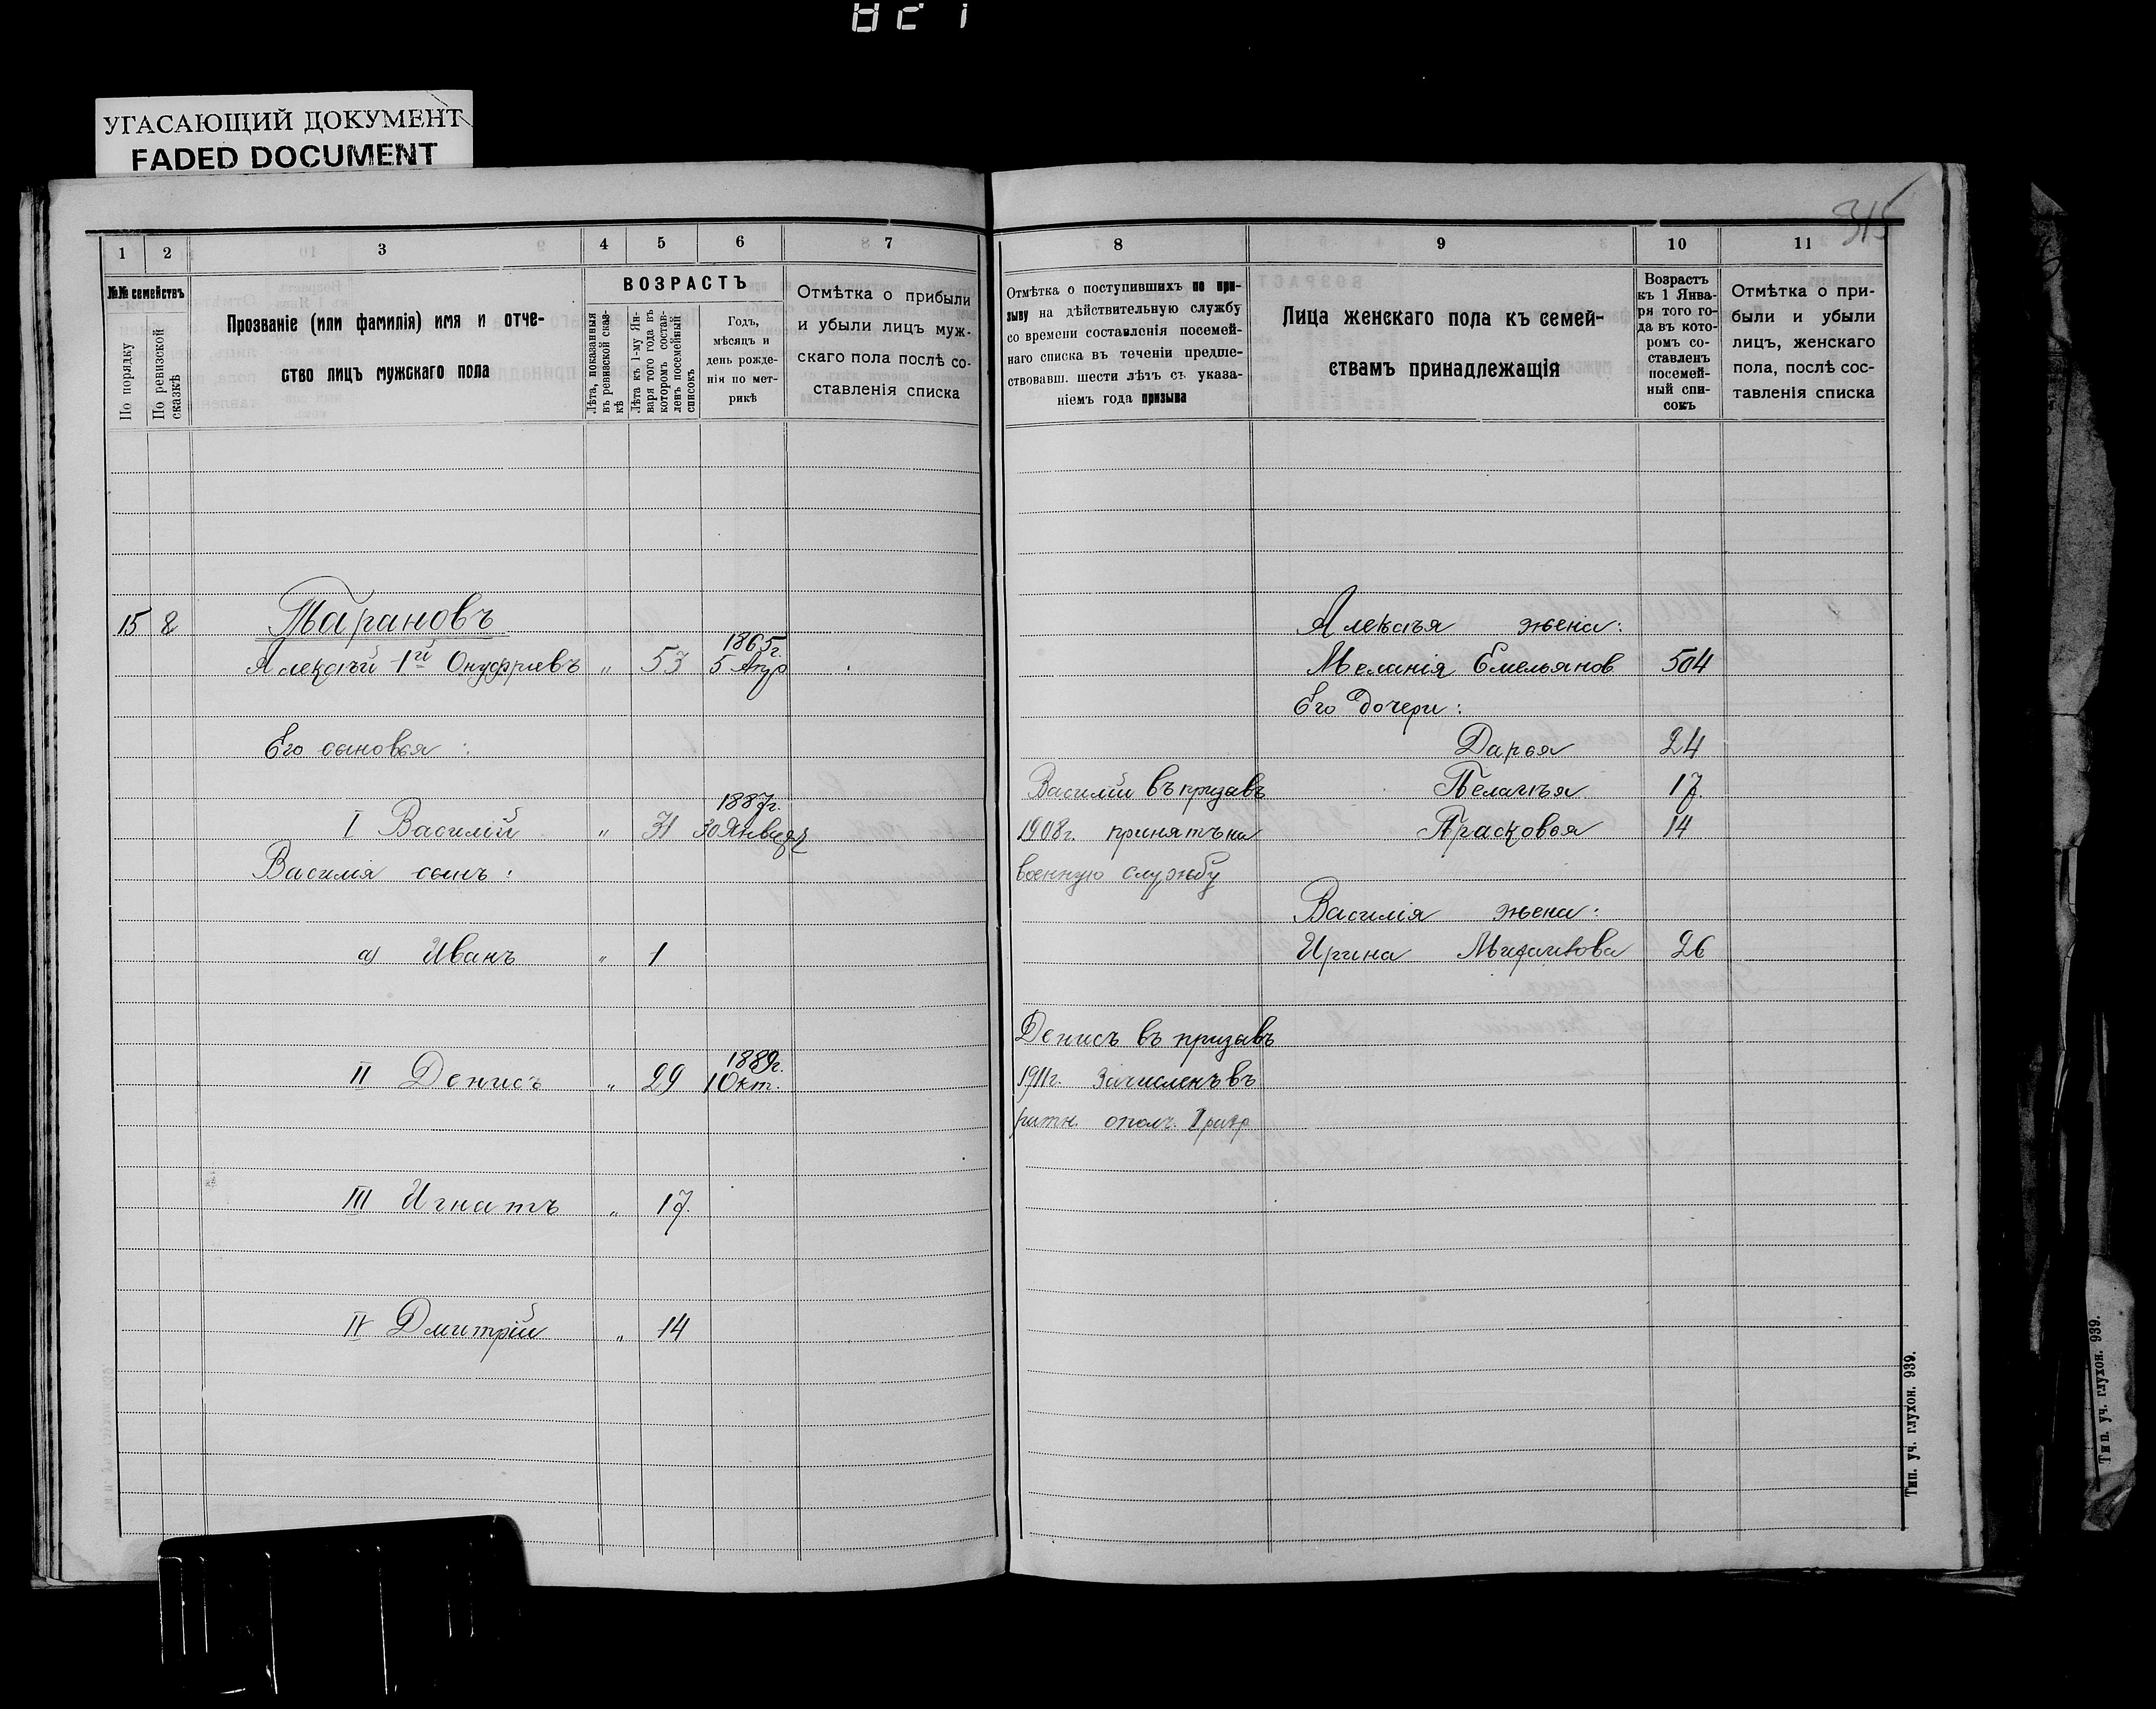 УГАСАЮЩИЙ ДОКУМЕНТ
FADED DOCUMENT
315
1 2 3 4 5 6 7
№№ семействъ
По порядку
По ревизской сказкѣ
Прозваніе (или фамилія) имя и отче-
ство лицъ мужскаго пола
ВОЗРАСТЪ
Лѣта, показанныя
въ ревизской сказ-
кѣ
Лѣта къ 1-му Ян-
варя того года въ
которомъ состав-
ленъ посемейный
списокъ
Годъ,
мѣсяцъ и
день рожде-
нія по мет-
рикѣ
Отмѣтка о прибыли
и убыли лицъ муж-
скаго пола послѣ со-
ставленія списка
15 8 Тарановъ
1865г.
Алексѣй 1й Онуфріевъ „ 53 5 Апр
Его сыновья :
1887г.
I Василій „ 31 30 Января
Василія сынъ :
а) Иванъ „ 1
1889г.
II Денисъ „ 29 1 Окт.
III Игнатъ „ 17.
IV Дмитрій „ 14
8 9 10 11
Отмѣтка о поступившихъ по при-
зыву на дѣйствительную службу
со времени составленія посемей-
наго списка въ теченіи предше-
ствовавш. шести лѣтъ съ указа-
ніемъ года призыва
Лица женскаго пола къ семей-
ствамъ принадлежащія
Возрастъ
къ 1 Янва-
ря того го-
да въ кото-
ромъ со-
ставленъ
посемей-
ный спи-
сокъ
Отмѣтка о при-
были и убыли
лицъ, женскаго
пола, послѣ сос-
тавленія списка
Алексѣя жена:
Меланія Емельянов 504
Его дочери :
Дарья 24
Василій въ призывъ Пелагѣя 17.
1908г. принятъ на Прасковья 14
военную службу
Василія жена:
Ирина 26
Денисъ въ призывъ
1911г. Зачисленъ въ
ратн. ополч. I разр
Тип. уч. глухон. 939.
Тип. уч. глухон. 939.